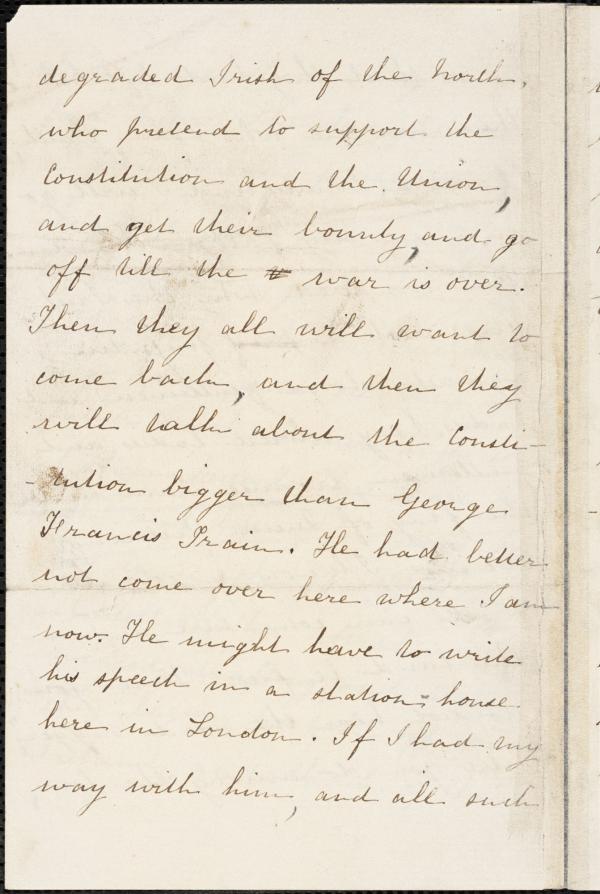 degraded Irish of the North,
who pretend to support the
Constitution and the Union,
and get their bounty, and go
off till the war is over.
Then they all will want to
come back, and then they
will talk about the Consti-
-tution bigger than George
Francis Train. He had better
not come over here where I am
now. He might have to write
his speech in a station-house
here in London. If I had my
way with him, and all such